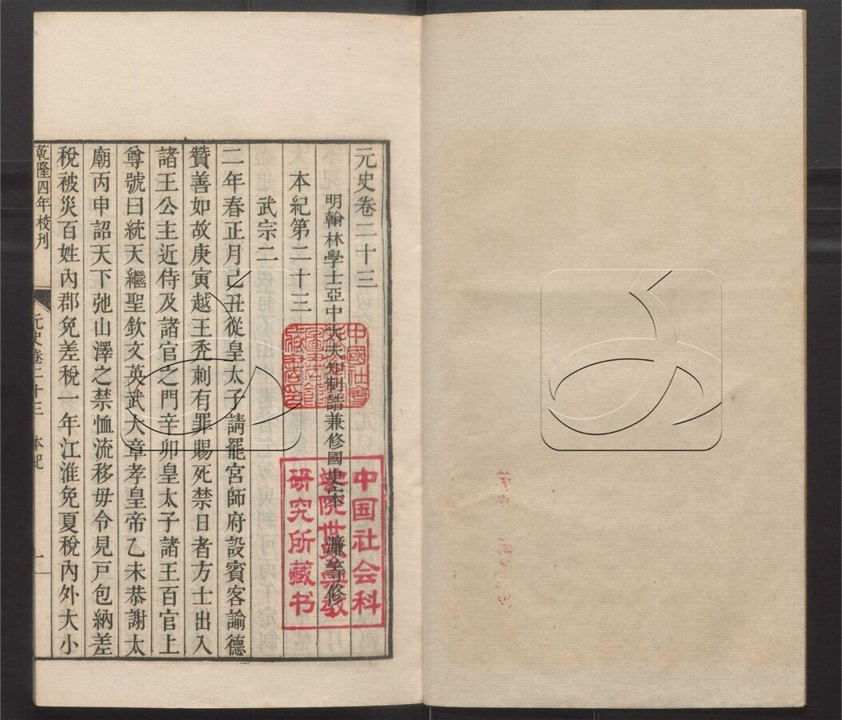 元史卷二十三
明翰林學士亞中大夫知制誥兼修國史宋濂等修
本紀第二十三
武宗二
二年春正月己丑從皇太子請罷宮師府設賓客諭德
贊善如故庚寅越王禿剌有罪賜死禁日者方士出入
諸王公主近侍及諸官之門辛卯皇太子諸王百官上
尊號曰統天繼聖欽文英武大章孝皇帝乙未恭謝太
廟丙申詔天下弛山澤之禁恤流移毋令見戶包納差
稅被災百姓內郡免差稅一年江淮免夏稅內外大小
乾隆四年校刊
元史卷二十三 本紀 一
中國社會
中国社会科
學院世界宗教
研究所藏书